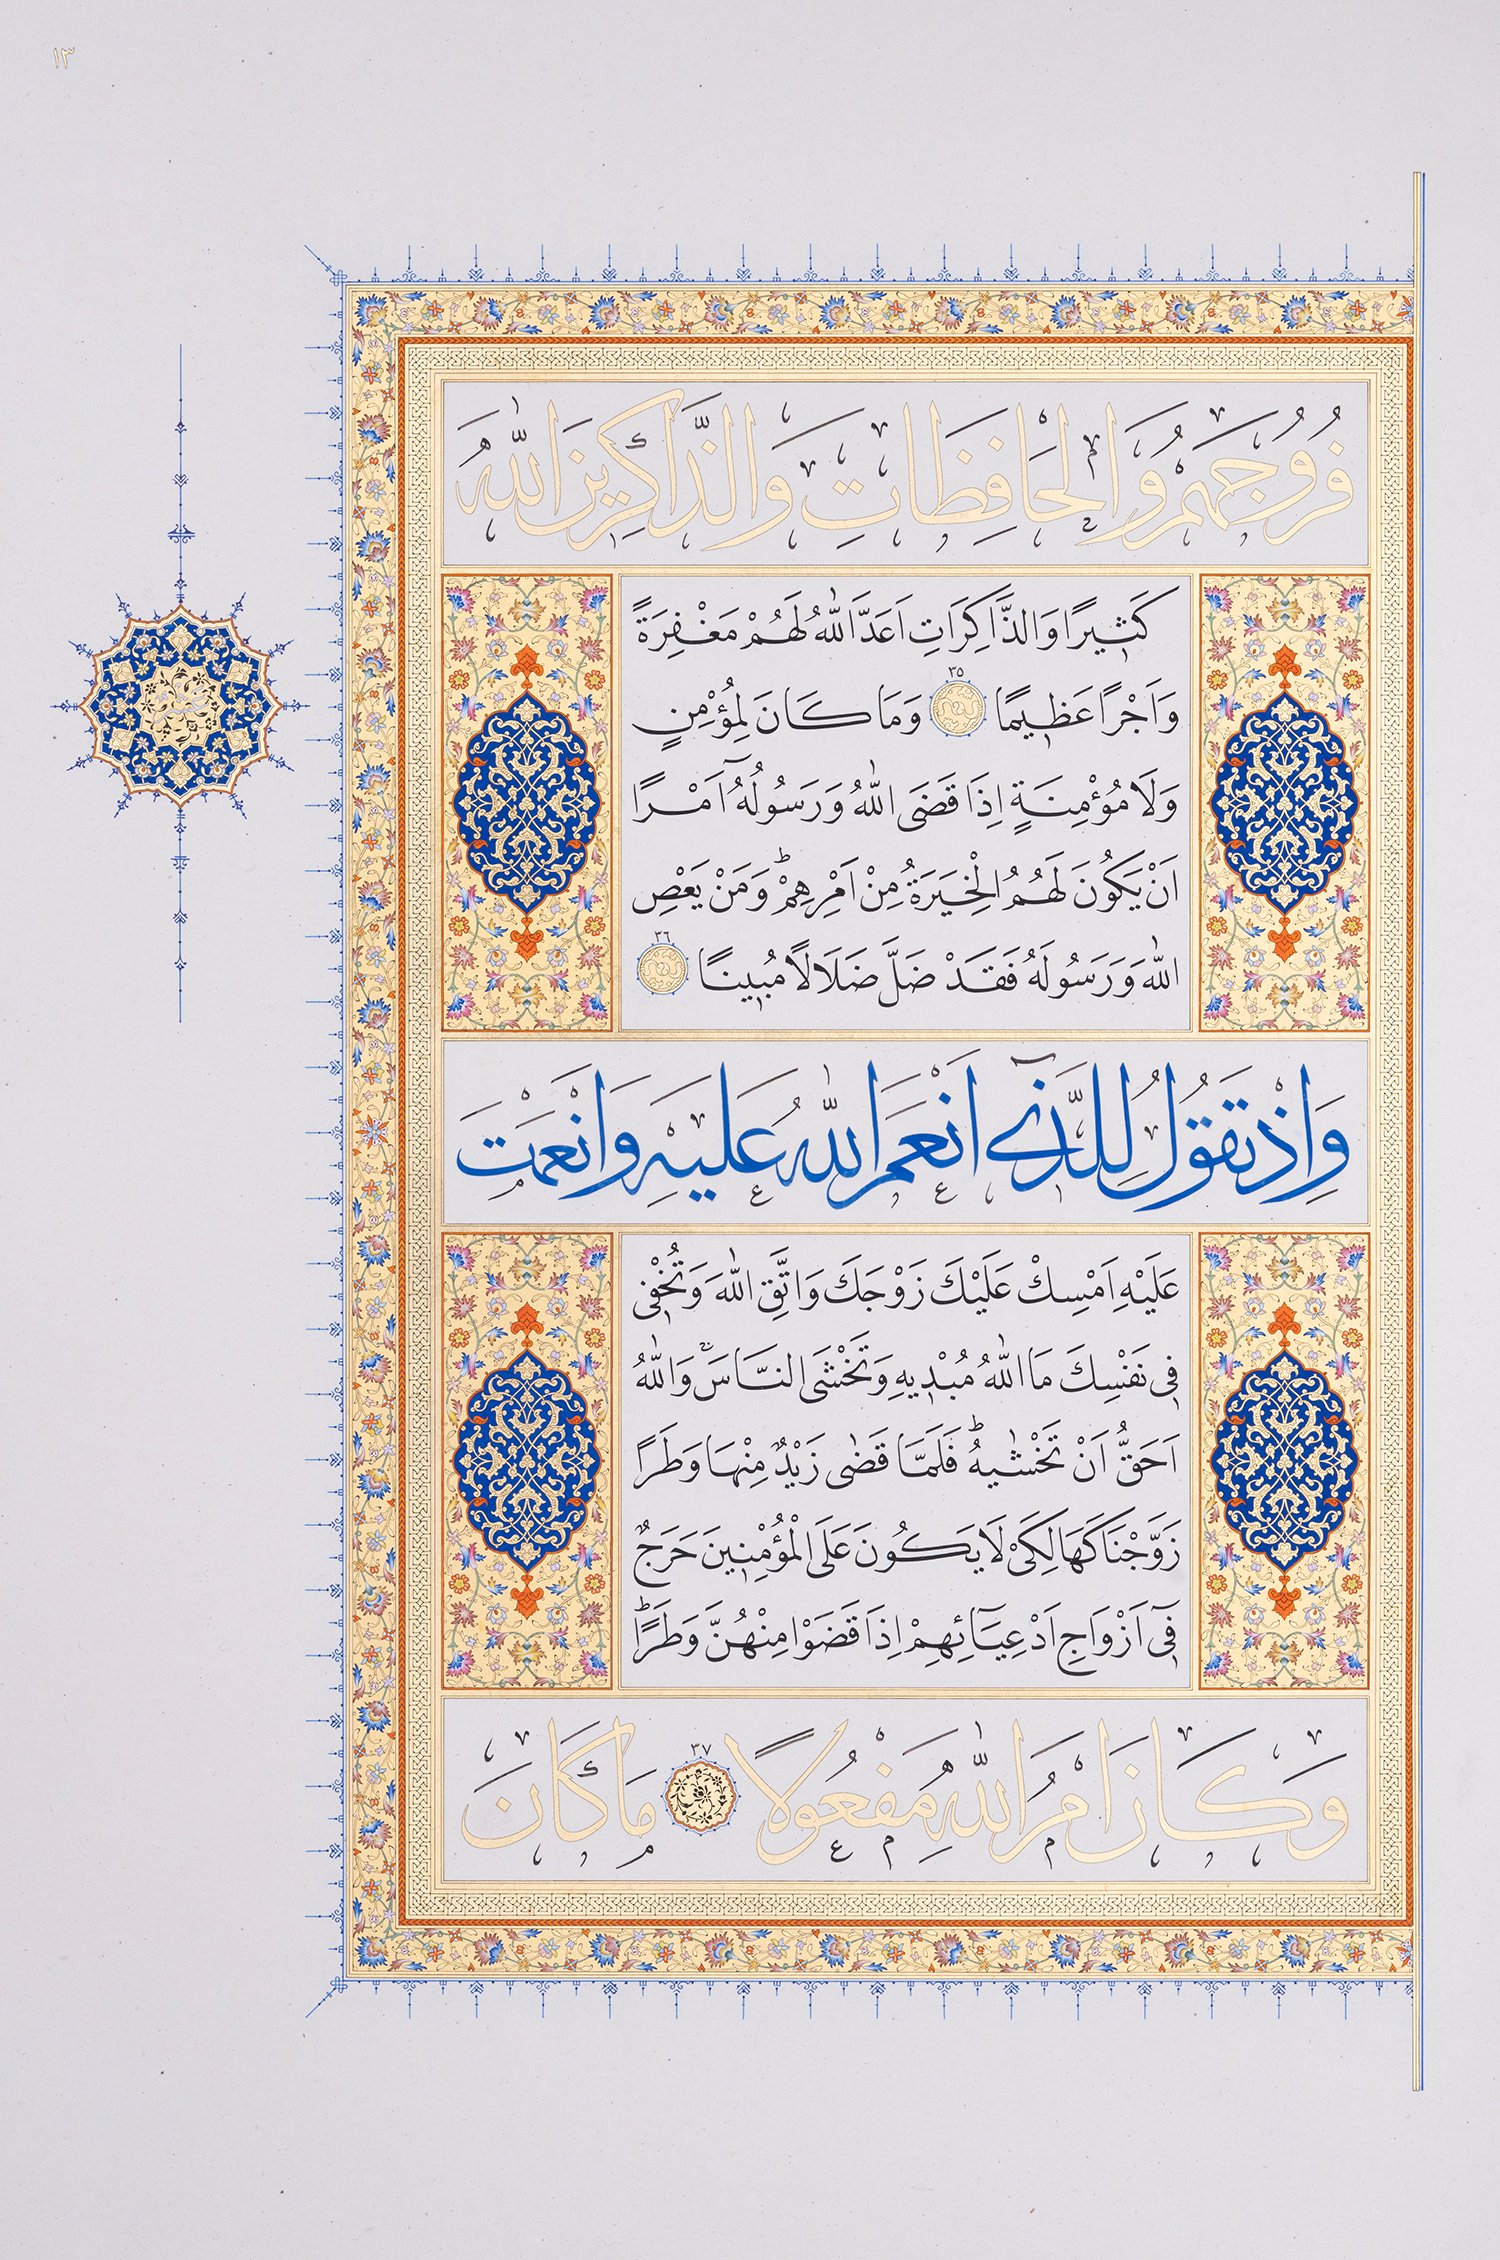 ١٣
فُرُوجَهُمْ وَالْحَافِظَاتِ وَالذَّاكِرِينَ اللّٰهَ
كَثِيرًا وَالذَّاكِرَاتِ اَعَدَّ اللّٰهُ لَهُمْ مَغْفِرَةً
وَاَجْرًا عَظِيمًا ٣٥ وَمَا كَانَ لِمُؤْمِنٍ
وَلَا مُؤْمِنَةٍ اِذَا قَضَى اللّٰهُ وَرَسُولُهُٓ اَمْرًا
اَنْ يَكُونَ لَهُمُ الْخِيَرَةُ مِنْ اَمْرِهِمْۜ وَمَنْ يَعْصِ
اللّٰهَ وَرَسُولَهُ فَقَدْ ضَلَّ ضَلَالًا مُبِينًا ٣٦
وَاِذْ تَقُولُ لِلَّذِٓي اَنْعَمَ اللّٰهُ عَلَيْهِ وَاَنْعَمْتَ
عَلَيْهِ اَمْسِكْ عَلَيْكَ زَوْجَكَ وَاتَّقِ اللّٰهَ وَتُخْفِي
فِي نَفْسِكَ مَا اللّٰهُ مُبْدِيهِ وَتَخْشَى النَّاسَۚ وَاللّٰهُ
اَحَقُّ اَنْ تَخْشٰيهُۜ فَلَمَّا قَضٰى زَيْدٌ مِنْهَا وَطَرًا
زَوَّجْنَاكَهَا لِكَيْ لَا يَكُونَ عَلَى الْمُؤْمِنِينَ حَرَجٌ
فِٓي اَزْوَاجِ اَدْعِيَٓائِهِمْ اِذَا قَضَوْا مِنْهُنَّ وَطَرًاۜ
وَكَانَ اَمْرُ اللّٰهِ مَفْعُولًا ٣٧ مَا كَانَ